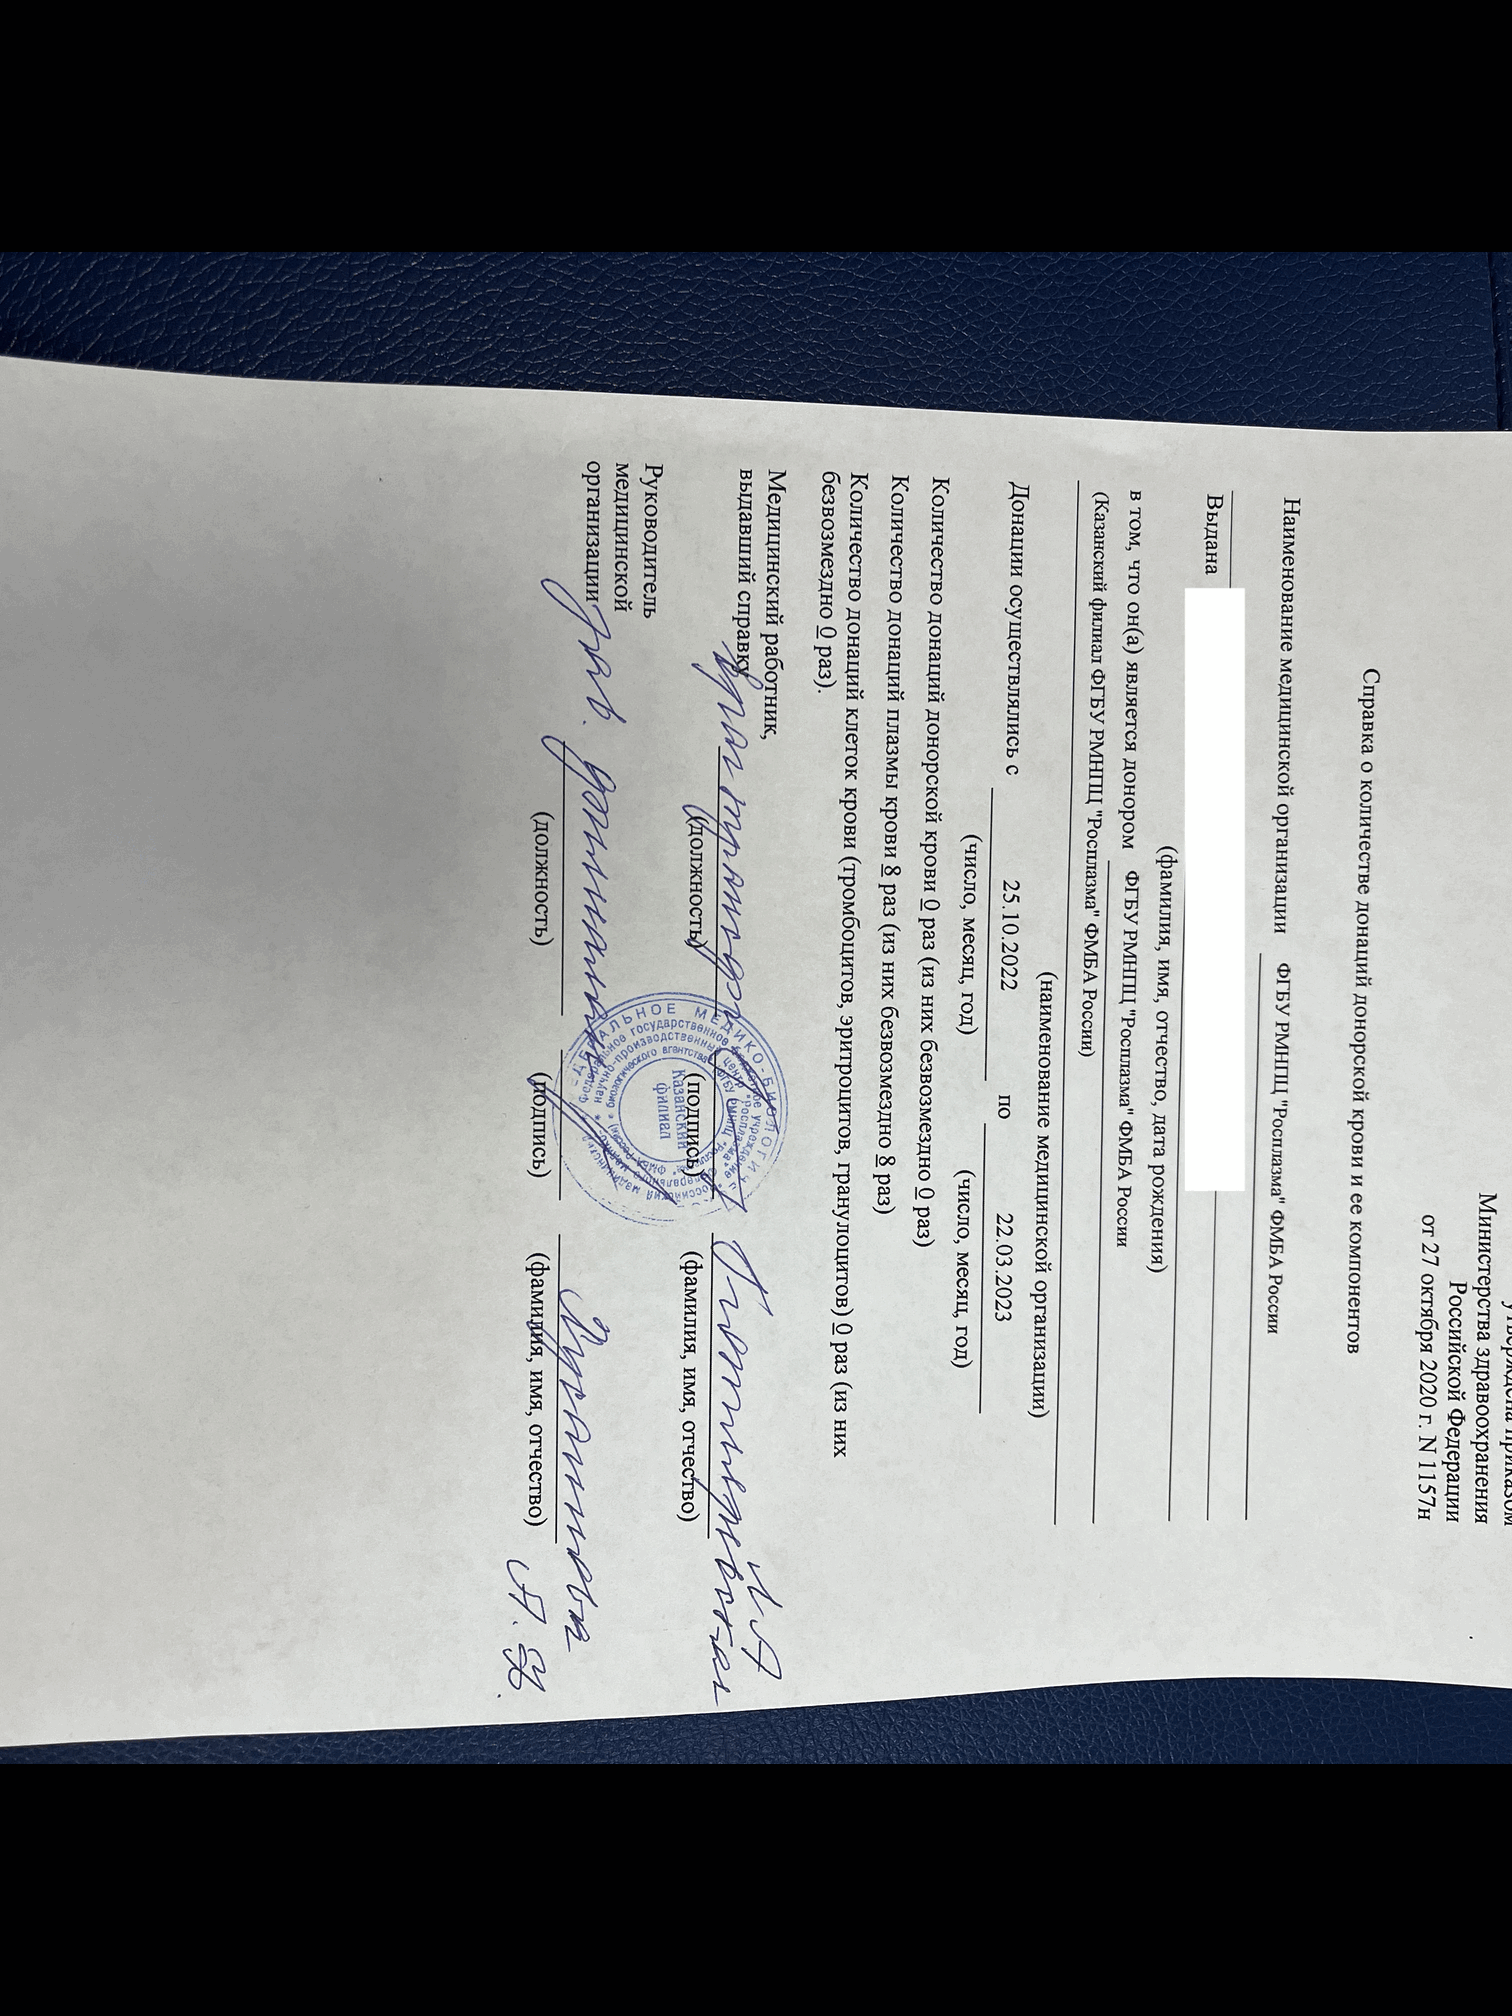 Утверждена приказом
Министерства здравоохранения
Российской Федерации
от 27 октября 2020 г. N 1157н
Справка о количестве донаций донорской крови и ее компонентов
Наименование медицинской организации ФГБУ РМНПЦ "Росплазма" ФМБА России
Выдана
(фамилия, имя, отчество, дата рождения)
в том, что он(а) является донором ФГБУ РМНПЦ "Росплазма" ФМБА России
(Казанский филиал ФГБУ РМНПЦ "Росплазма" ФМБА России)
(наименование медицинской организации)
Донации осуществлялись с 25.10.2022 по 22.03.2023
(число, месяц, год) (число, месяц, год)
Количество донаций донорской крови 0 раз (из них безвозмездно 0 раз)
Количество донаций плазмы крови 8 раз (из них безвозмездно 8 раз)
Количество донаций клеток крови (тромбоцитов, эритроцитов, гранулоцитов) 0 раз (из них
безвозмездно 0 раз).
Медицинский работник,
выдавший справку врач трансфуз Л.А
(должность) (подпись) (фамилия, имя, отчество)
Руководитель
медицинской
организации зав.
(должность) (подпись) (фамилия, имя, отчество)
Казанский
филиал